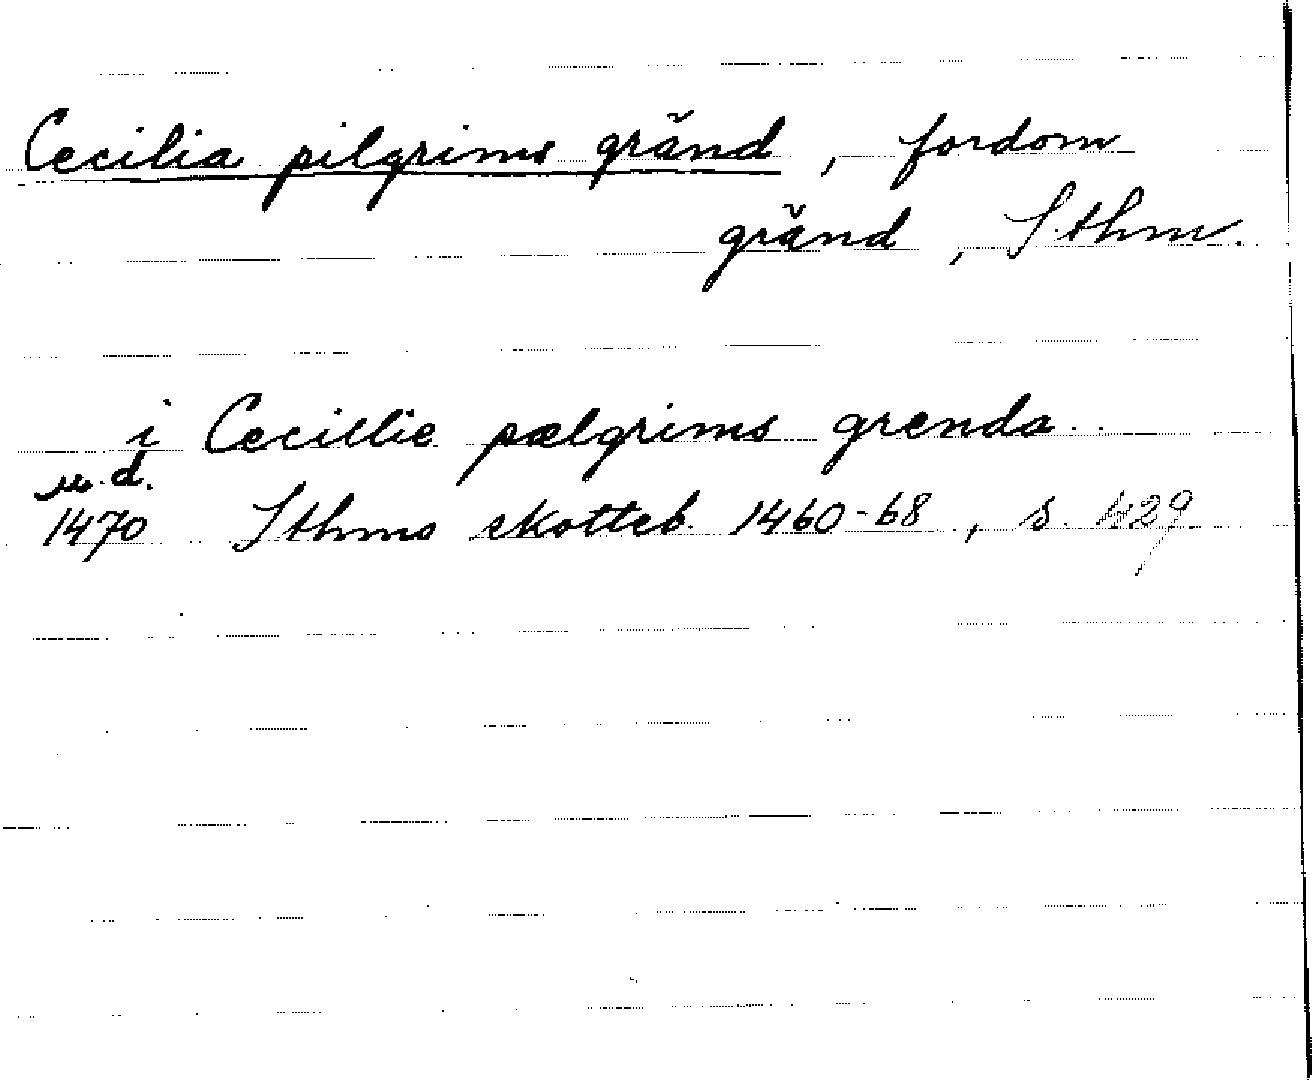 Cecilia pilgrims gränd, fordom
gränd, Sthm.
i Cecillie pælgrims grenda
u. d.
1470 Sthms skotteb. 1460-68, s. 429